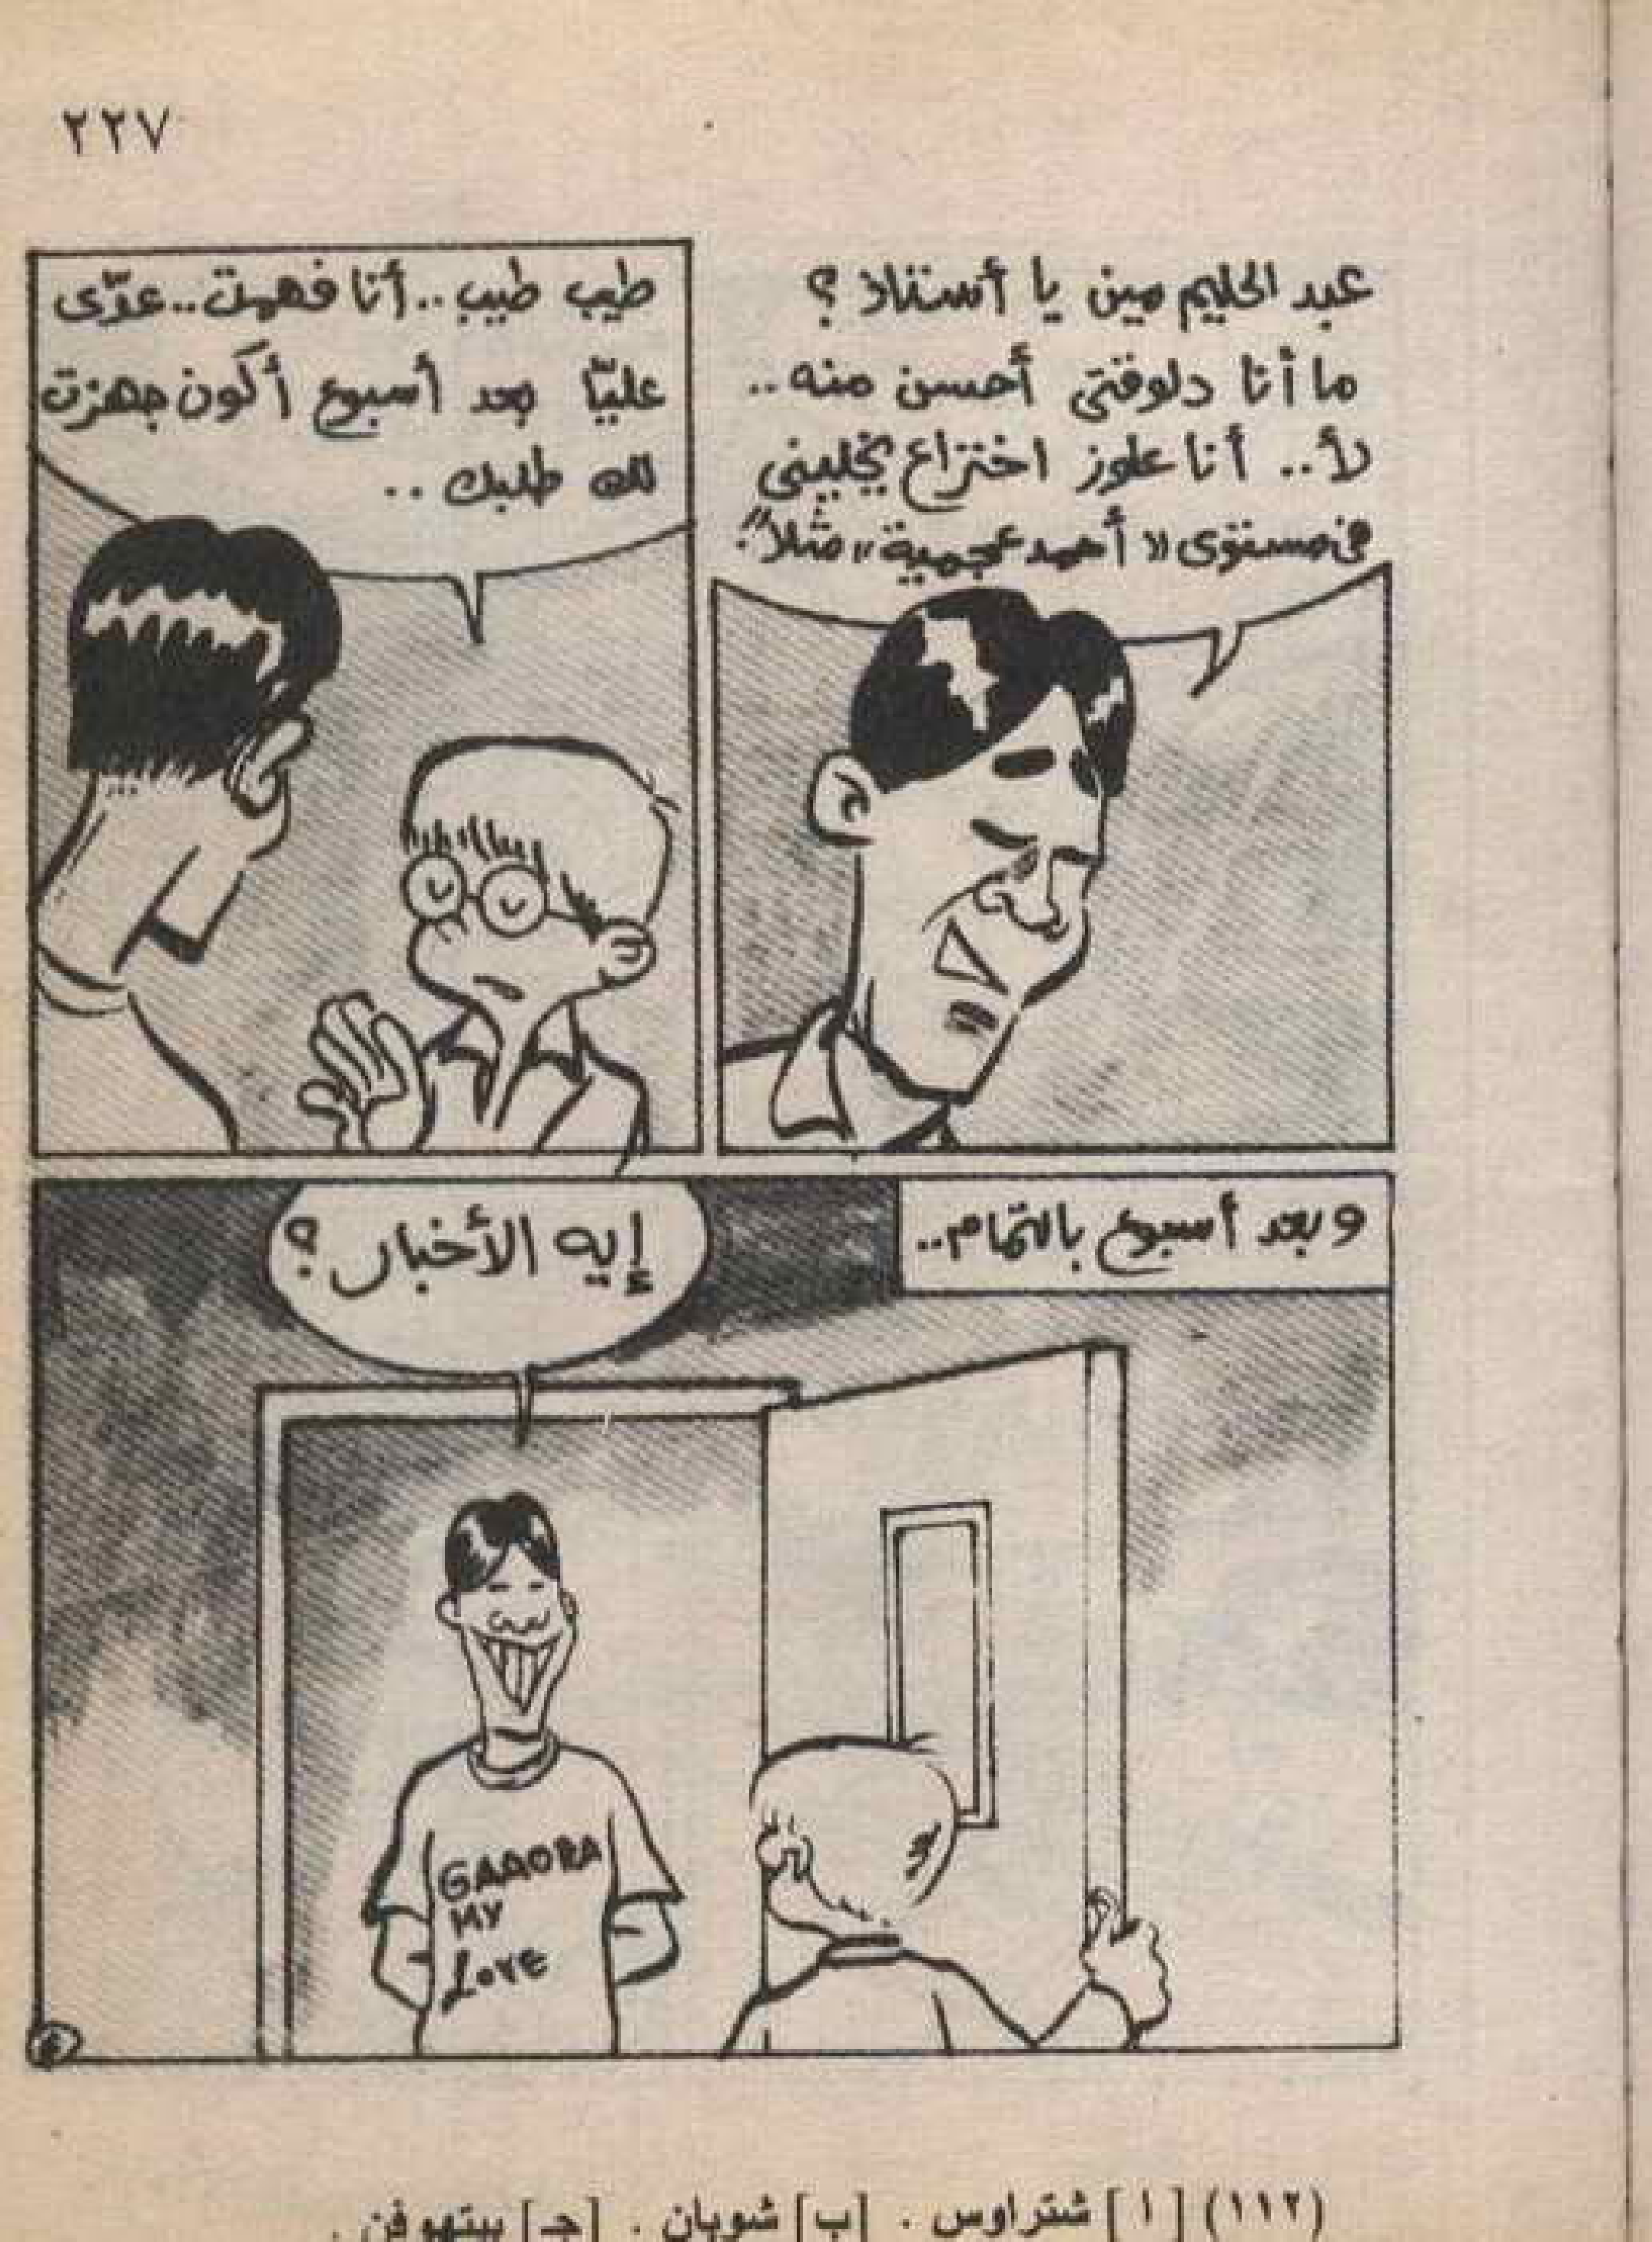 ٢٢٧
عبد الحليم مين يا أستاذ ؟
ما أنا دلوقتى أحسن منه ..
لأ .. أنا عاوز اختراع يخلينى
فى مستوى « أحمد عجمية » مثلاً !
طيب طيب .. أنا فهمت .. عدّى
عليّا بعد أسبوع أكون جهزت
لك طلبك ..
وبعد أسبوع بالتمام ..
إيه الأخبار ؟
GAAORA
MY
Love
(١١٢) [ أ ] شتراوس . [ب] شوبان . [جـ] بيتهوفن .